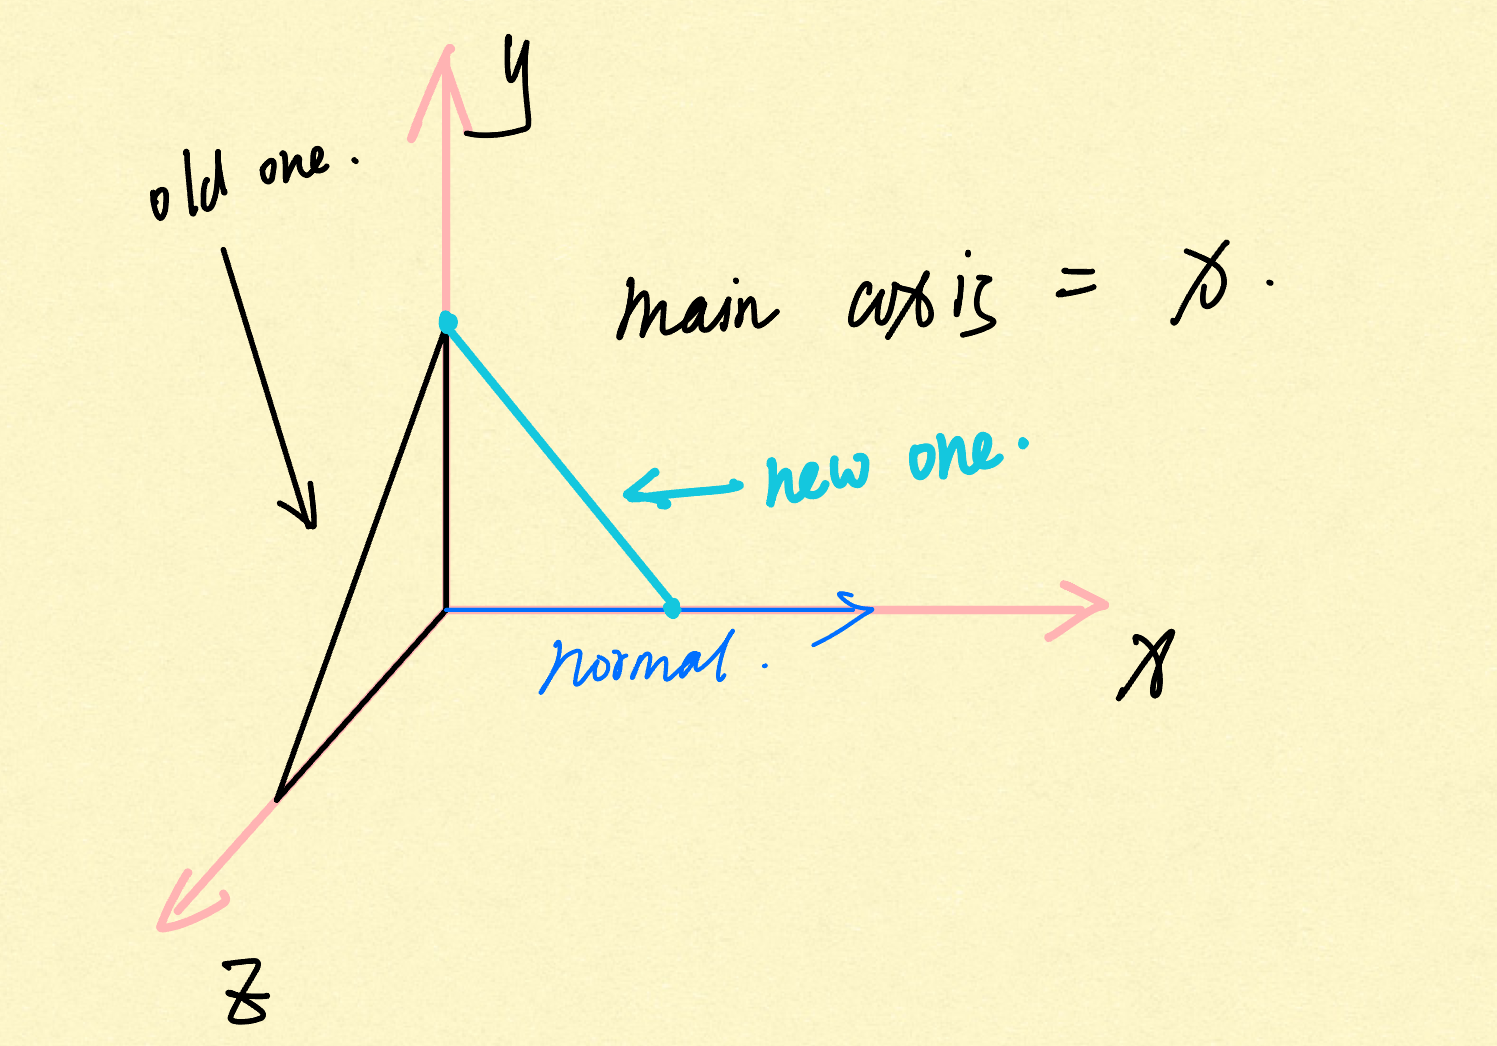 y
old one.
main axis = x.
new one.
normal.
x
z